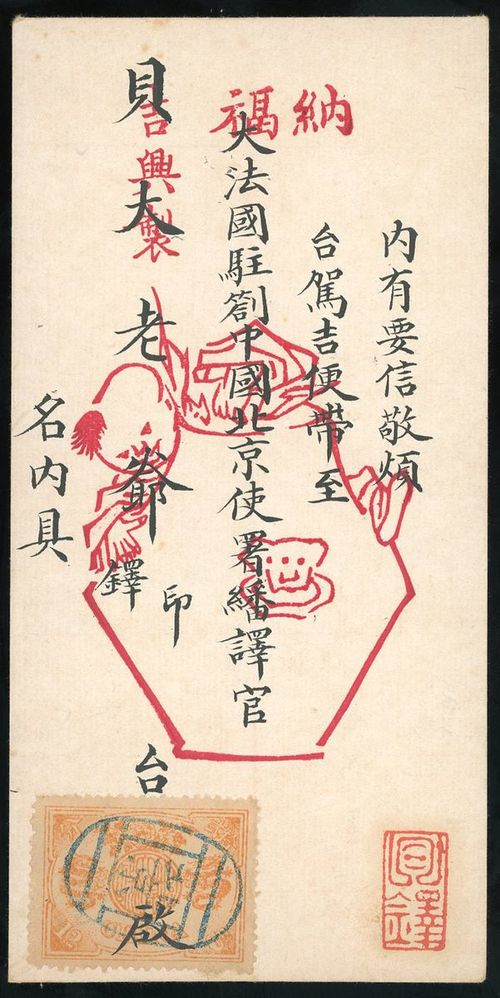 納福
内有要信敬煩
台駕吉便帶至
大法國駐劄中國北京使署繙譯官
吉興製
貝大老爺
印
鐸
台啟
名内具
12